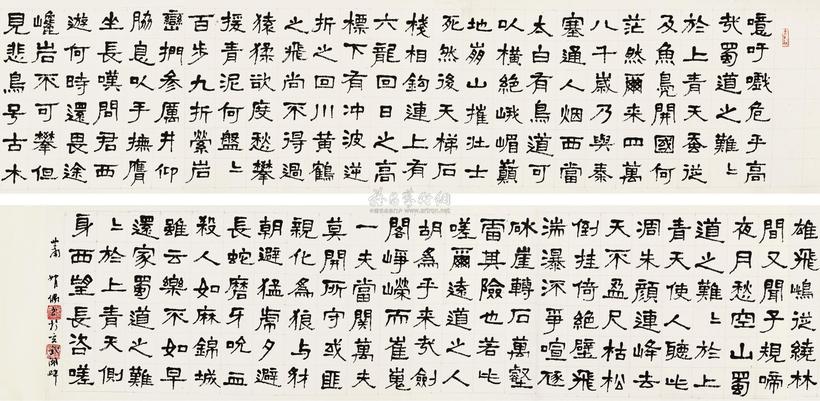 噫吁嚱危乎高
哉蜀道之難〻
於上青天蚕從
及魚鳧開國何
茫然爾来四萬
八千歲乃與秦
塞通人烟西當
太白有鳥道可
以橫絕峨嵋巔
地崩山摧壯士
死然後天梯石
棧相鉤連上有
六龍回日之高
標下有冲波逆
折之回川黃鶴
之飛尚不得過
猿猱欲度愁攀
援青泥何盤〻
百步九折縈岩
巒捫參厲井仰
脇息以手撫膺
坐長嘆問君西
遊何時還畏途
巉岩不可攀但
見悲鳥号古木
雄飛鳴從繞林
間又聞子規啼
夜月愁空山蜀
道之難〻於上
青天使人聽此
凋朱顏連峰去
天不盈尺枯松
倒挂倚絕壁飛
湍瀑流爭喧豗
砯崖轉石萬壑
雷其險也若此
嗟爾遠道之人
胡為乎来哉劍
閣崢嶸而崔嵬
一夫當關萬夫
莫開所守或匪
親化為狼与豺
朝避猛虎夕避
長蛇磨牙吮血
殺人如麻錦城
雖云樂不如早
還家蜀道之難
〻於上青天側
身西望長咨嗟
書於玄武湖畔